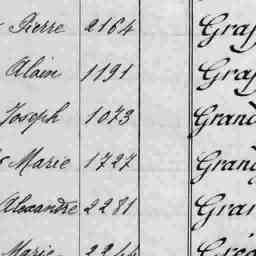 Pierre 2164 Graf
Alain 1191 Graf
Joseph 1073 Grand
Marie 1727 Grand
Alexandre 2281 Gran
Marie